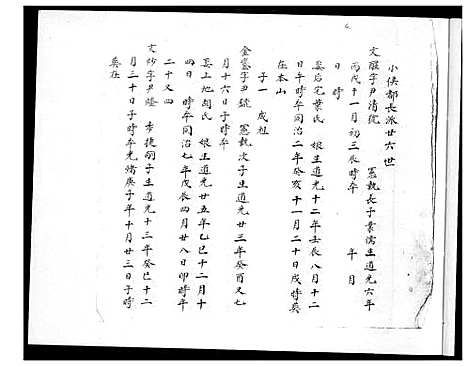 小侯都長派廿六世
文醒字尹清號 憲執長子業儒生道光六年
丙戌十一月初三辰時卒 年 月
日 時
娶后宅葉氏 娘生道光十二年壬辰八月十二
日午時卒同治二年癸亥十一月二十日戌時葬
在本山
子一 成祖
金鎣字尹號 憲執次子生道光廿三年癸酉又七
月十六日子時卒
娶上地胡氏 娘生道光廿五年乙巳十二月十
四日 時卒同治七年戊辰四月廿八日卯時年
二十又四
文 字尹燈 步捷嗣子生道光十三年癸巳十二
月三十日子時卒光緒庚子年十月廿三日子時
葬在